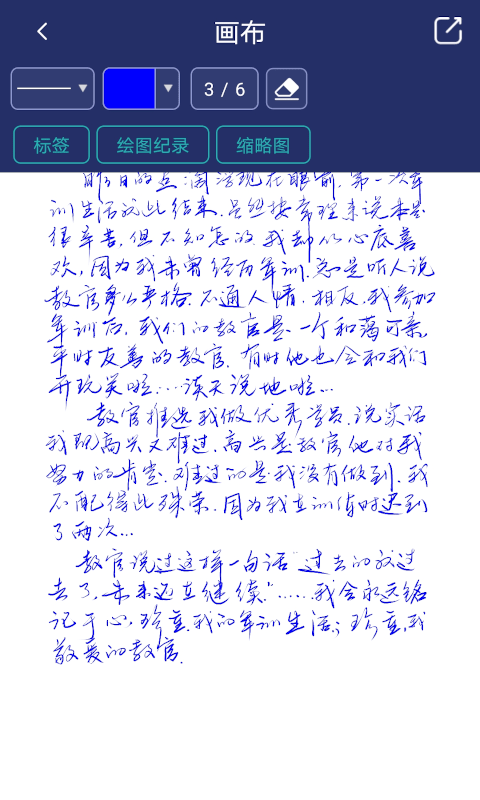 画布
3 / 6
标签
绘图纪录
缩略图
昨日的点滴浮现在眼前，第一次军
训生活就此结束，虽然按常理来说本是
很辛苦，但不知怎的我却从心底喜
欢，因为我未曾经历军训，总是听人说
教官多么严格，不通人情，相反，我参加
军训后，我们的教官是一个和蔼可亲，
平时友善的教官，有时他也会和我们
开玩笑啦…谈天说地啦…
教官推选我做优秀学员，说实话
我既高兴又难过，高兴是教官他对我
努力的肯定，难过的是我没有做到，我
不配得此殊荣，因为我在训练时迟到
了两次…
教官说过这样一句话"过去的放过
去了，未来还在继续"……我会永远铭
记于心，珍重，我的军训生活；珍重，我
敬爱的教官.